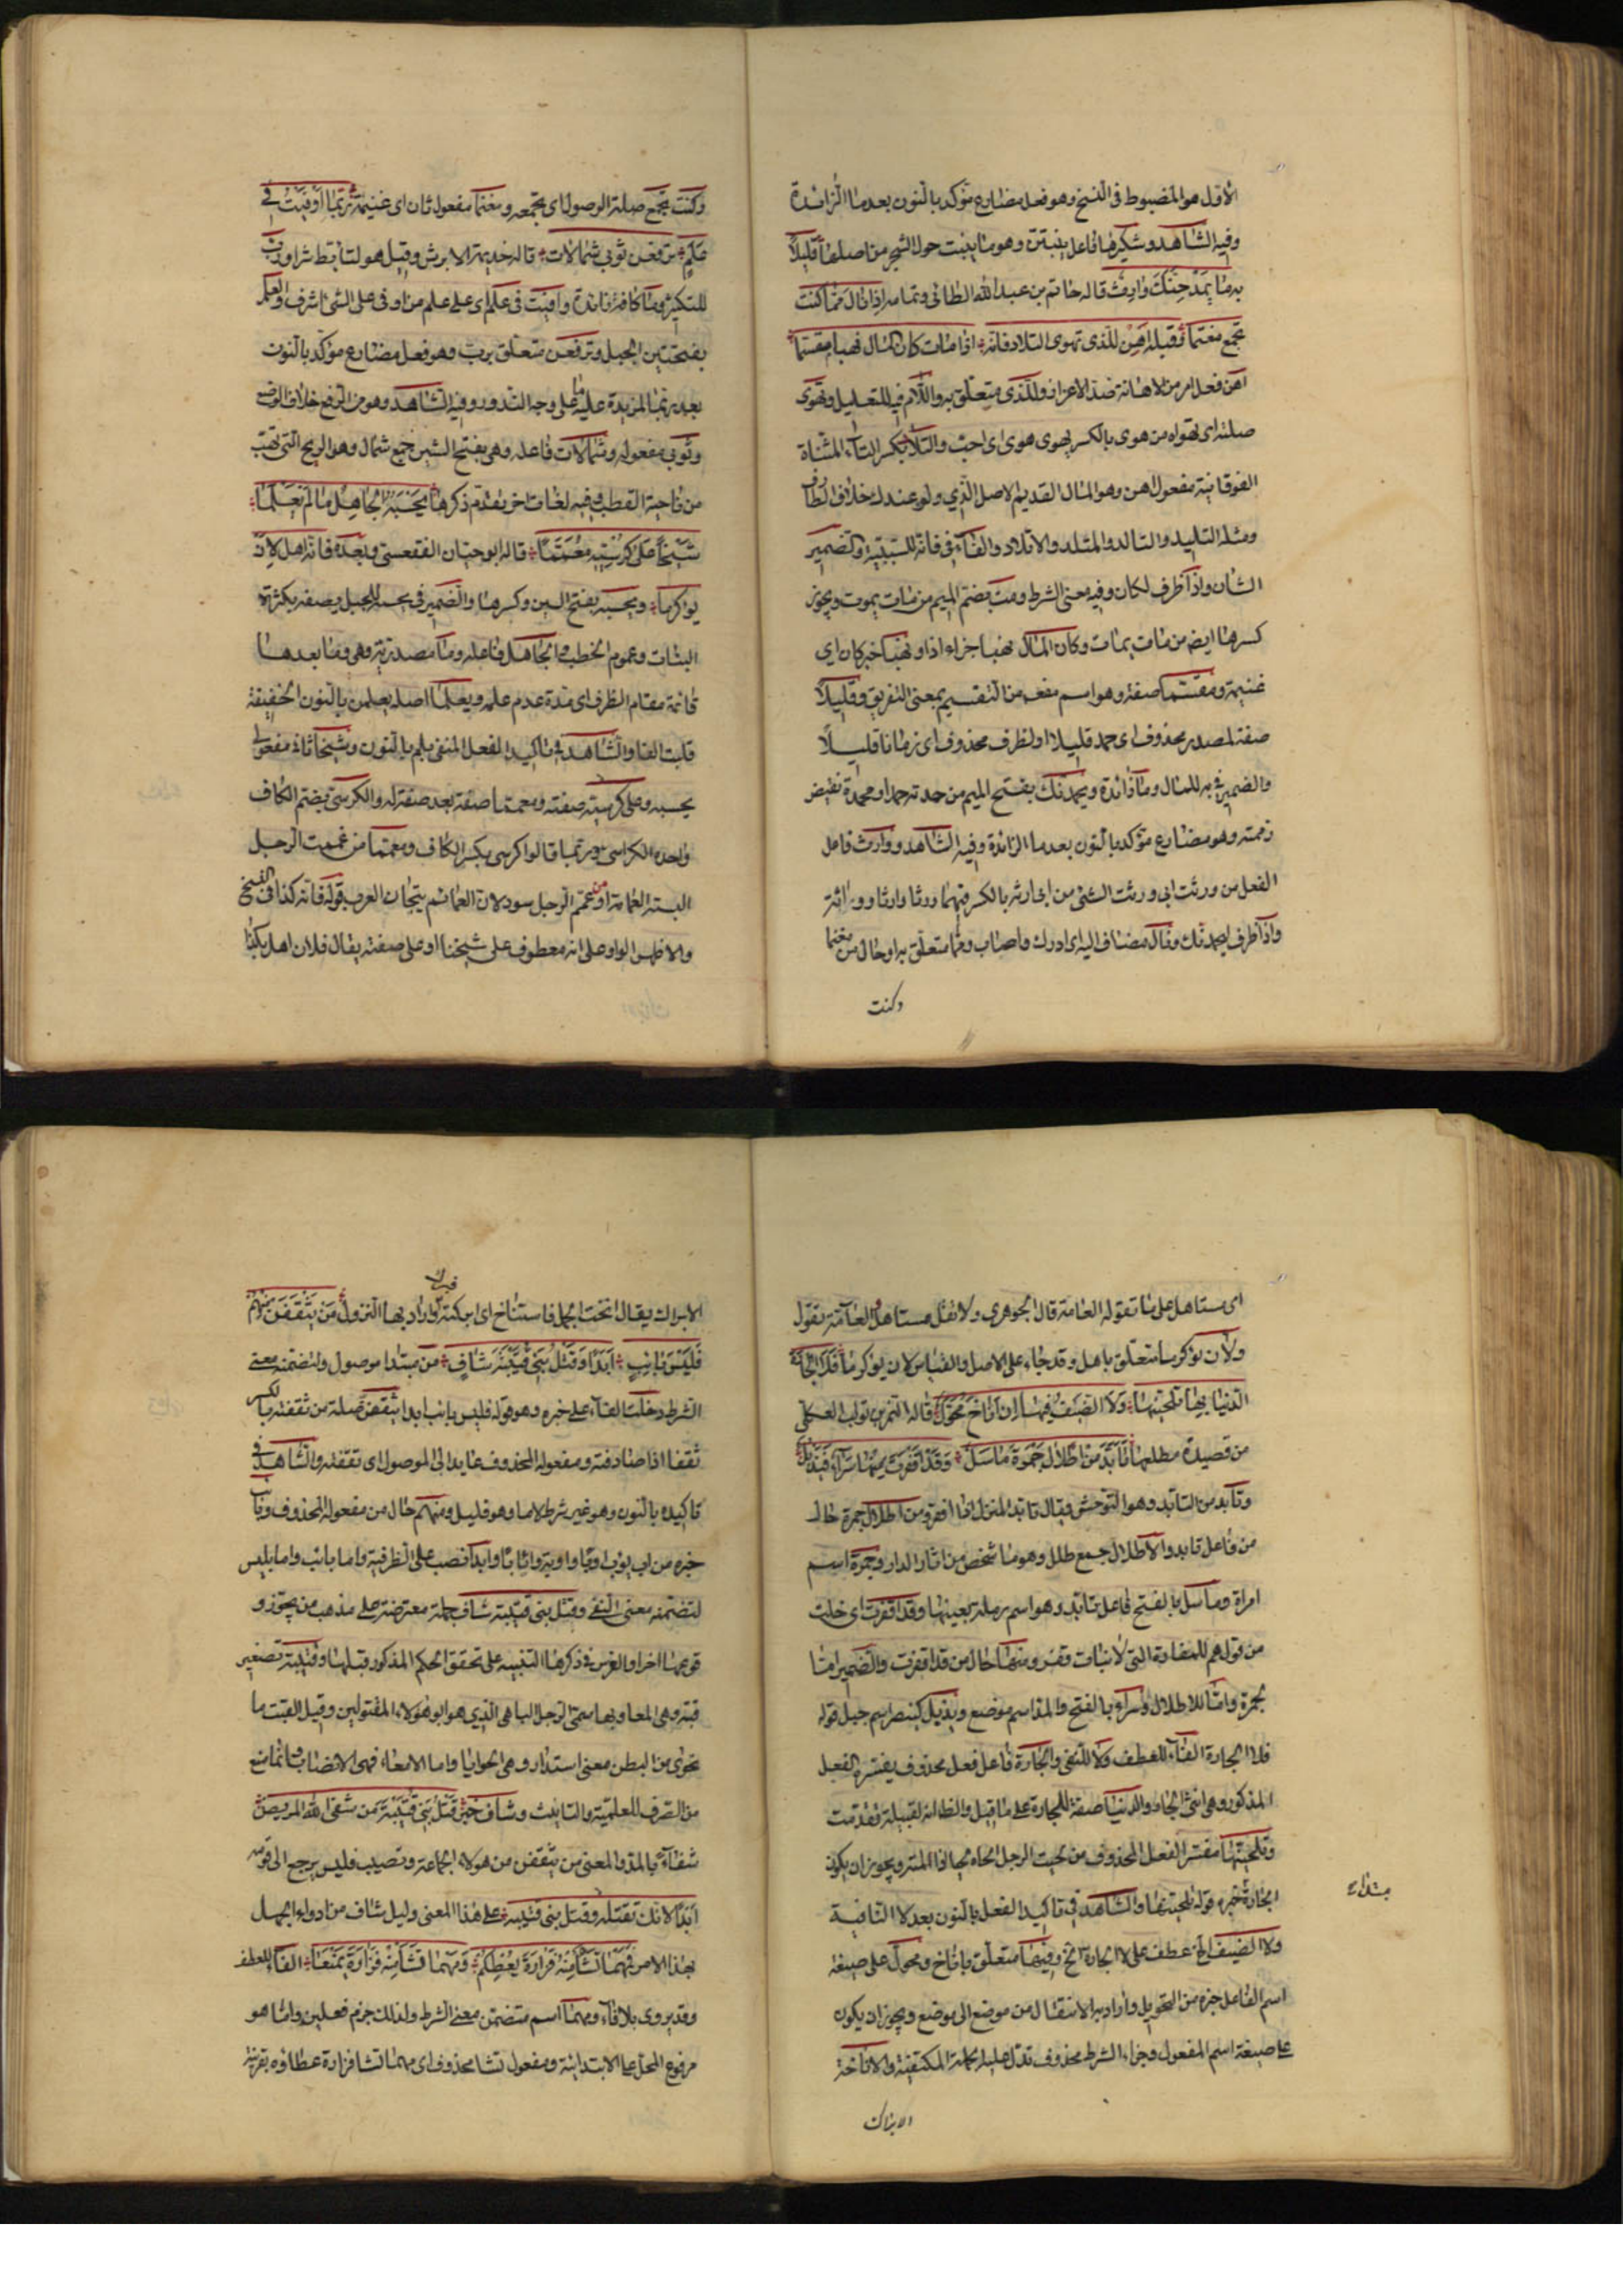 الاول هو المضبوط فى النسخ وهو فعل مضارع مؤكد بالنون بعد ما الزائدة
وفيه الشاهد وشكيرها فاعل ينبتن وهو ما ينبت حول الشجر من اصلها قليلاً
به ما يَحمَدنّك وارِثٌ قاله حاتم بن عبد الله الطائى وتمامه اذا نال مما كنت
تجمع مغنما وقبله اَهِنْ للذى تهوى التلاد فانه اذا مات كان المال نهبا مقسما
اهن فعل امر من الاهانة ضد الاعزاز وللذى متعلق به واللام فيه للتعليل وتهوى
صلته اى تهواه من هوى بالكسر يهوى هوى اى احب والتلاد بكسر التاء المثناة
الفوقانية مفعول اهن وهو المال القديم الاصل الذي ولد عندك خلاف الطارف
ومثله التليد والتالد والمتلد والاتلاد والفاء فى فانه للسببية والضمير
الشان واذا ظرف لكان وفيه معنى الشرط ومت بضم الميم من مات يموت ويجوز
كسرها ايضا من مات يمات وكان المال نهبا جزاء اذا و نهبا خبر كان اى
غنيمة ومقسما صفته وهو اسم مفعـ من التقسيم بمعنى التفريق وقليلاً
صفة لمصدر محذوف اى حمد قليلا او لظرف محذوف اى زمانا قليلاً
والضمير فى به للمال وما زائدة ويحمدنك بفتح الميم من حمدته حمدا ومحمدة نقيض
ذممته وهو مضارع مؤكد بالنون بعد ما الزائدة وفيه الشاهد ووارث فاعل
الفعل من ورثت ابى وورثت الشئ من ابى ارثه بالكسر فيهما ورثا وارثا ووراثة
واذا ظرف ليحمدنك ونال مضاف اليه اى ادرك واصاب ومما متعلق به او حال من مغنما
وكنت
وكنت تجمع صلة الموصول اى تجمعه ومغنما مفعول ثان اى غنيمة رُبَّمَا اَوْفَيْتُ فِى
عَلَمٍ تَرفعن ثوبى شمالات قاله جذيمة الابرش وقيل هو لتأبط شرا ورب
للتكثير وما كافة او زائدة واوفيت فى علم اى على علم من اوفى على الشئ اشرف والعلم
بفتحتين الجبل وترفعن متعلق برب وهو فعل مضارع مؤكد بالنون
بعد ربما المزيدة عليه ما على وجه الندور وفيه الشاهد وهو من الرفع خلاف الوضع
وثوبى مفعوله وشمالات فاعله وهى بفتح الشين جمع شمال وهو الريح التى تهب
من ناحية القطب وفيه لغات اخر تقدم ذكرها يَحْسَبُهُ الجَاهِلُ مَا لَمْ يَعْلَمَا
شَيْخًا عَلَى كُرْسِيِّهِ مُعَمَّمًا قاله ابو حيان الفقعسى وبعده فانه اهل لان
يؤكرما ويحسبه بفتح السين وكسرها والضمير فى يحسبه للجبل يصفه بكثرة
النبات وعموم الخطب والجاهل فاعله وما مصدرية وهى وما بعدها
قائمة مقام الظرف اى مدة عدم علمه ويعلما اصله يعلمن بالنون الخفيفة
قلبت الفا والشاهد فى تاكيد الفعل المنفى بلم بالنون وشيخا ثانى مفعولى
يحسبه وعلى كرسيه صفته ومعمما صفة بعد صفة له والكرسى بضم الكاف
واحد الكراسى وربما قالوا كرسى بكسر الكاف ومعمما من عممت الرجل
البسته العمامة او من عمم الرجل سود لان العمائم تيجان العرب قوله فانه كذا فى النسخ
والاظهر الواو على انه معطوف على شيخا او على صفته يقال فلان اهل بكذا
اى مستاهل على ما تقوله العامة قال الجوهرى ولا تقل مستاهل والعامة تقول
ولأن يؤكرما متعلق باهل وقد جاء على الاصل والقياس لان يؤكرما فلا الجارة
الدنيا بها تلحينها ولا الضيف فيها ان اناخ محول قاله النمر بن تولب العكلى
من قصيدة مطلعها تأبد من اطلال جمرة ماسل وقد اقفرت منها سراء فيذبل
وتأبد من التابد وهو التوحش ويقال تابد المنزل اذا اقفر ومن اطلال جمرة حال
من فاعل تابد والاطلال جمع طلل وهو ما شخص من اثار الدار وجمرة اسم
امراة وماسل بالفتح فاعل تابد وهو اسم رملة بعينها وقد اقفرت اى خلت
من قولهم للمفازة التى لا نبات قفر ومنها حال من قد اقفرت والضمير اما
لجمرة واما للاطلال وسراء بالفتح والمد اسم موضع ويذبل كينصر اسم جبل قوله
فلا الجارة الفاء للعطف ولا للنفى والجارة فاعل فعل محذوف يفسره الفعل
المذكور وهى انثى الجار والدنيا صفة للجارة على ما قيل والظاهر لقبيلة قدمت
وتلحينها مفسر الفعل المحذوف من لحيت الرجل الحاه لحيا اذا لمته ويجوز ان يكون
الجارة مبتداء خبره قوله تلحينها والشاهد فى تاكيد الفعل بالنون بعد لا النافية
ولا الضيف الخ عطف على لا الجارة الخ وفيها متعلق باناخ ومحول على صيغة
اسم الفاعل خبره من التحويل واراد به الانتقال من موضع الى موضع ويجوز ان يكون
على صيغة اسم المفعول وجزاء الشرط محذوف تدل عليه الجملة المكتنفة والاناخة
الابراك
الابراك يقال انخت الجمل فاستناخ اى ابركته فبرك واراد بها النزول مَن يَثْقَفَنْ مِنهُمْ
فَلَيْسَ بآئِبٍ اَبَدًا وَقَتْلُ بَنِى قُتَيْبَةَ شَافِ من مبتدا موصول ولتضمنه معنى
الشرط دخلت الفاء على خبره وهو قوله فليس بائب ابدا ويثقفن صلة من ثقفته بالكسر
ثقفا اذا صادفته ومفعوله المحذوف عايد الى الموصول اى تثقفنه والشاهد فى
تاكيده بالنون وهو غير شرط لاما وهو قليل ومنهم حال من مفعوله المحذوف وبائب
خبره من اب يؤب اوبا واوبة وايابا وابدا نصب على الظرفية واما بائب واما بليس
لتضمنه معنى النفى وقتل بنى قتيبة شاف جملة معترضة على مذهب من يجوز و
قوعها اخرا والغرض فى ذكرها التنبيه على تحقق الحكم المذكور قبلها وقتيبة تصغير
قتبة وهى المعا وبها سمى الرجل الباهى الذي هو ابو هؤلاء المقتولين وقيل القتبت ما
تحوى من البطن معنى استدار وهى الحوايا واما الامعاء فهى الاقصاب وانما منع
من الصرف للعلمية والتانيث وشاف خبر قتل بنى قتيبة من شفى الله المريض
شفاء بالمد والمعنى من يثقفن من هولاء الجماعة وتصيب فليس يرجع الى قومه
ابدا لانك تقتله وقتل بنى قتيبة على هذا المعنى وليل شاف من ادواء الجهل
بهذا الامر فَمَهْمَا تَشَأْ مِنْهُ فَزَارَةُ يُعْطِكُمْ وَمَهْمَا تَشَأْ مِنْهُ فَزَارَةُ يَمْنَعَا الفاء للعطف
وقد يروى بلا فاء ومهما اسم متضمن معنى الشرط ولذلك جزم فعلين وانما هو
مرفوع المحل على الابتدائية ومفعول تشا محذوف اى مهما تشا فزارة عطاؤه بقرينة